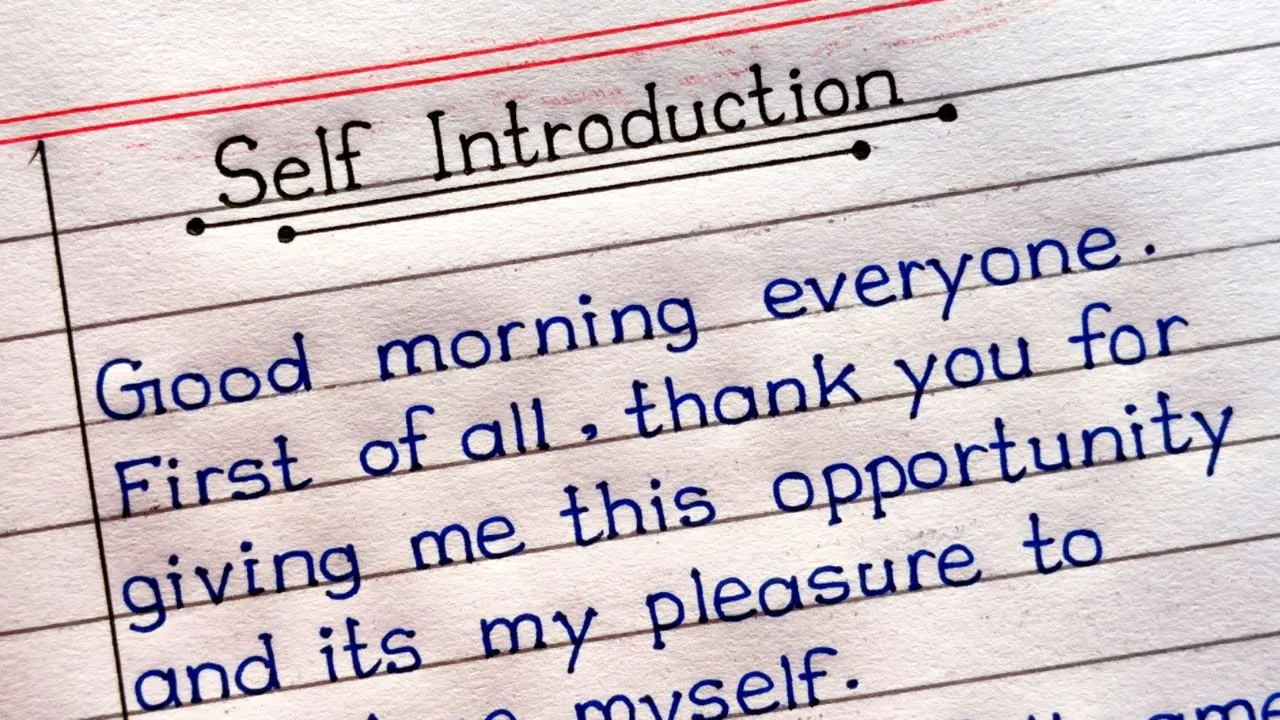 Self Introduction
Good morning everyone.
First of all, thank you for
giving me this opportunity
and its my pleasure to
myself.